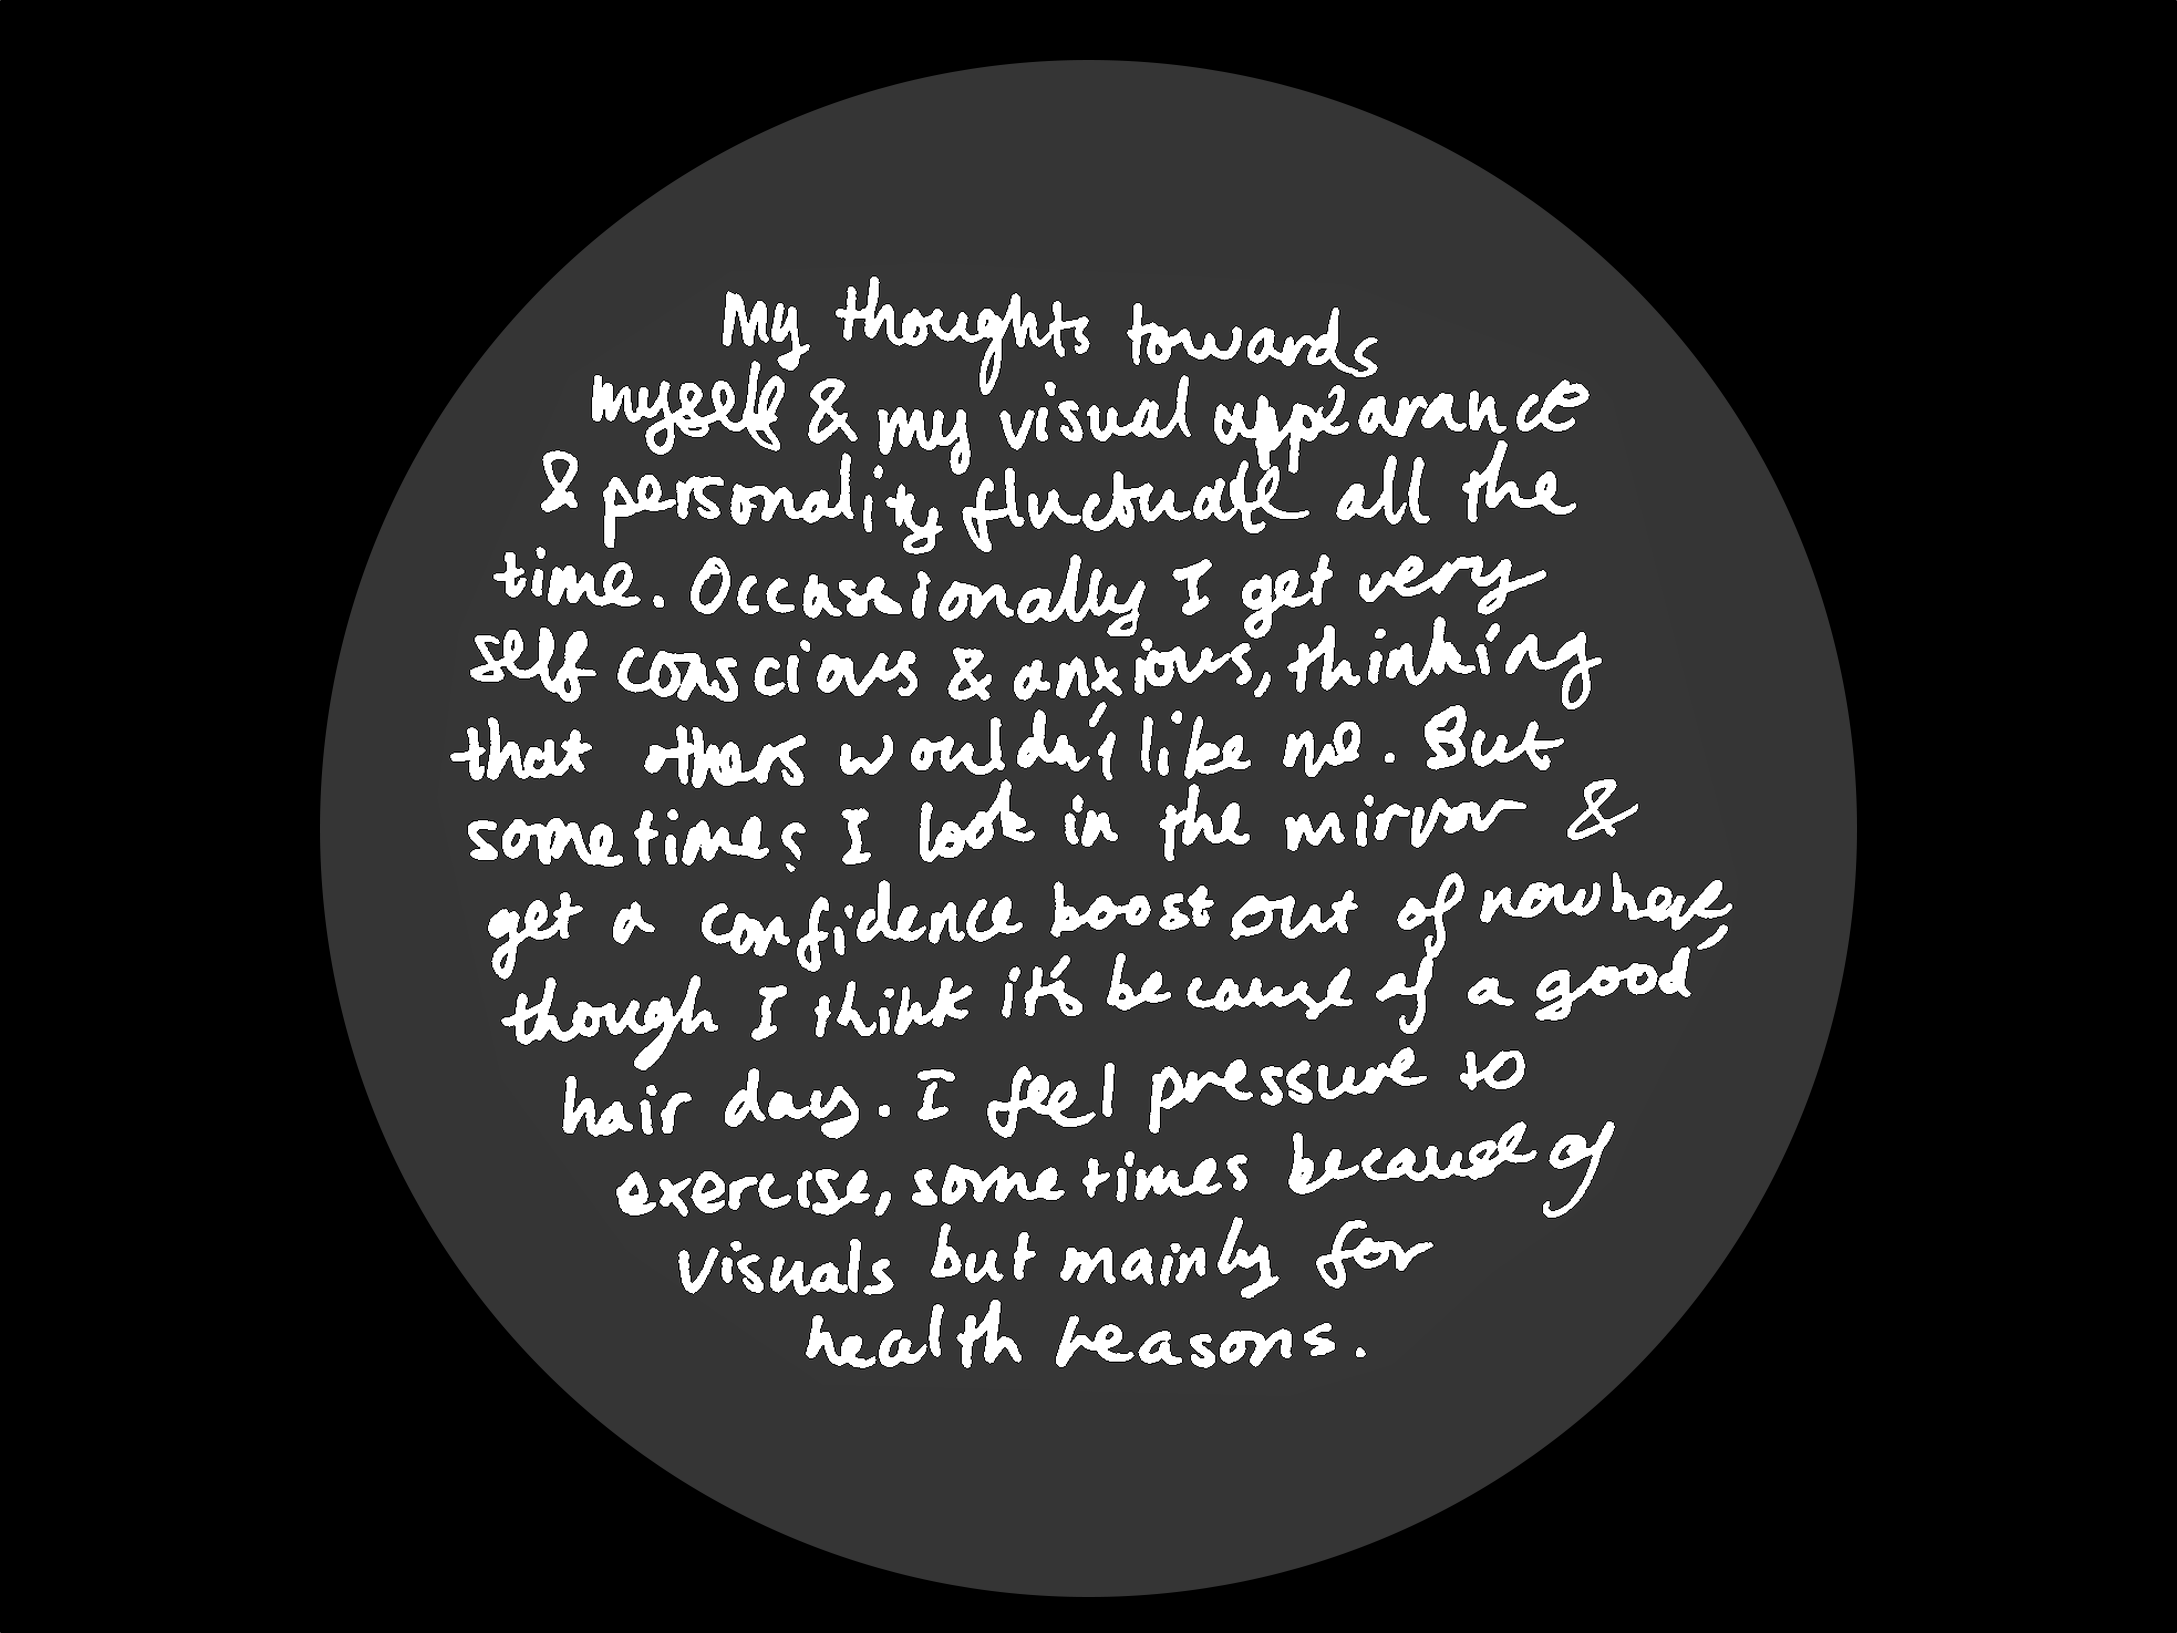 My thoughts towards
myself & my visual appearance
& personality fluctuate all the
time. Occassionally I get very
self conscious & anxious, thinking
that others wouldn't like me. But
sometimes I look in the mirror &
get a confidence boost out of nowhere,
though I think it's because of a good
hair day. I feel pressure to
exercise, sometimes because of
visuals but mainly for
health reasons.